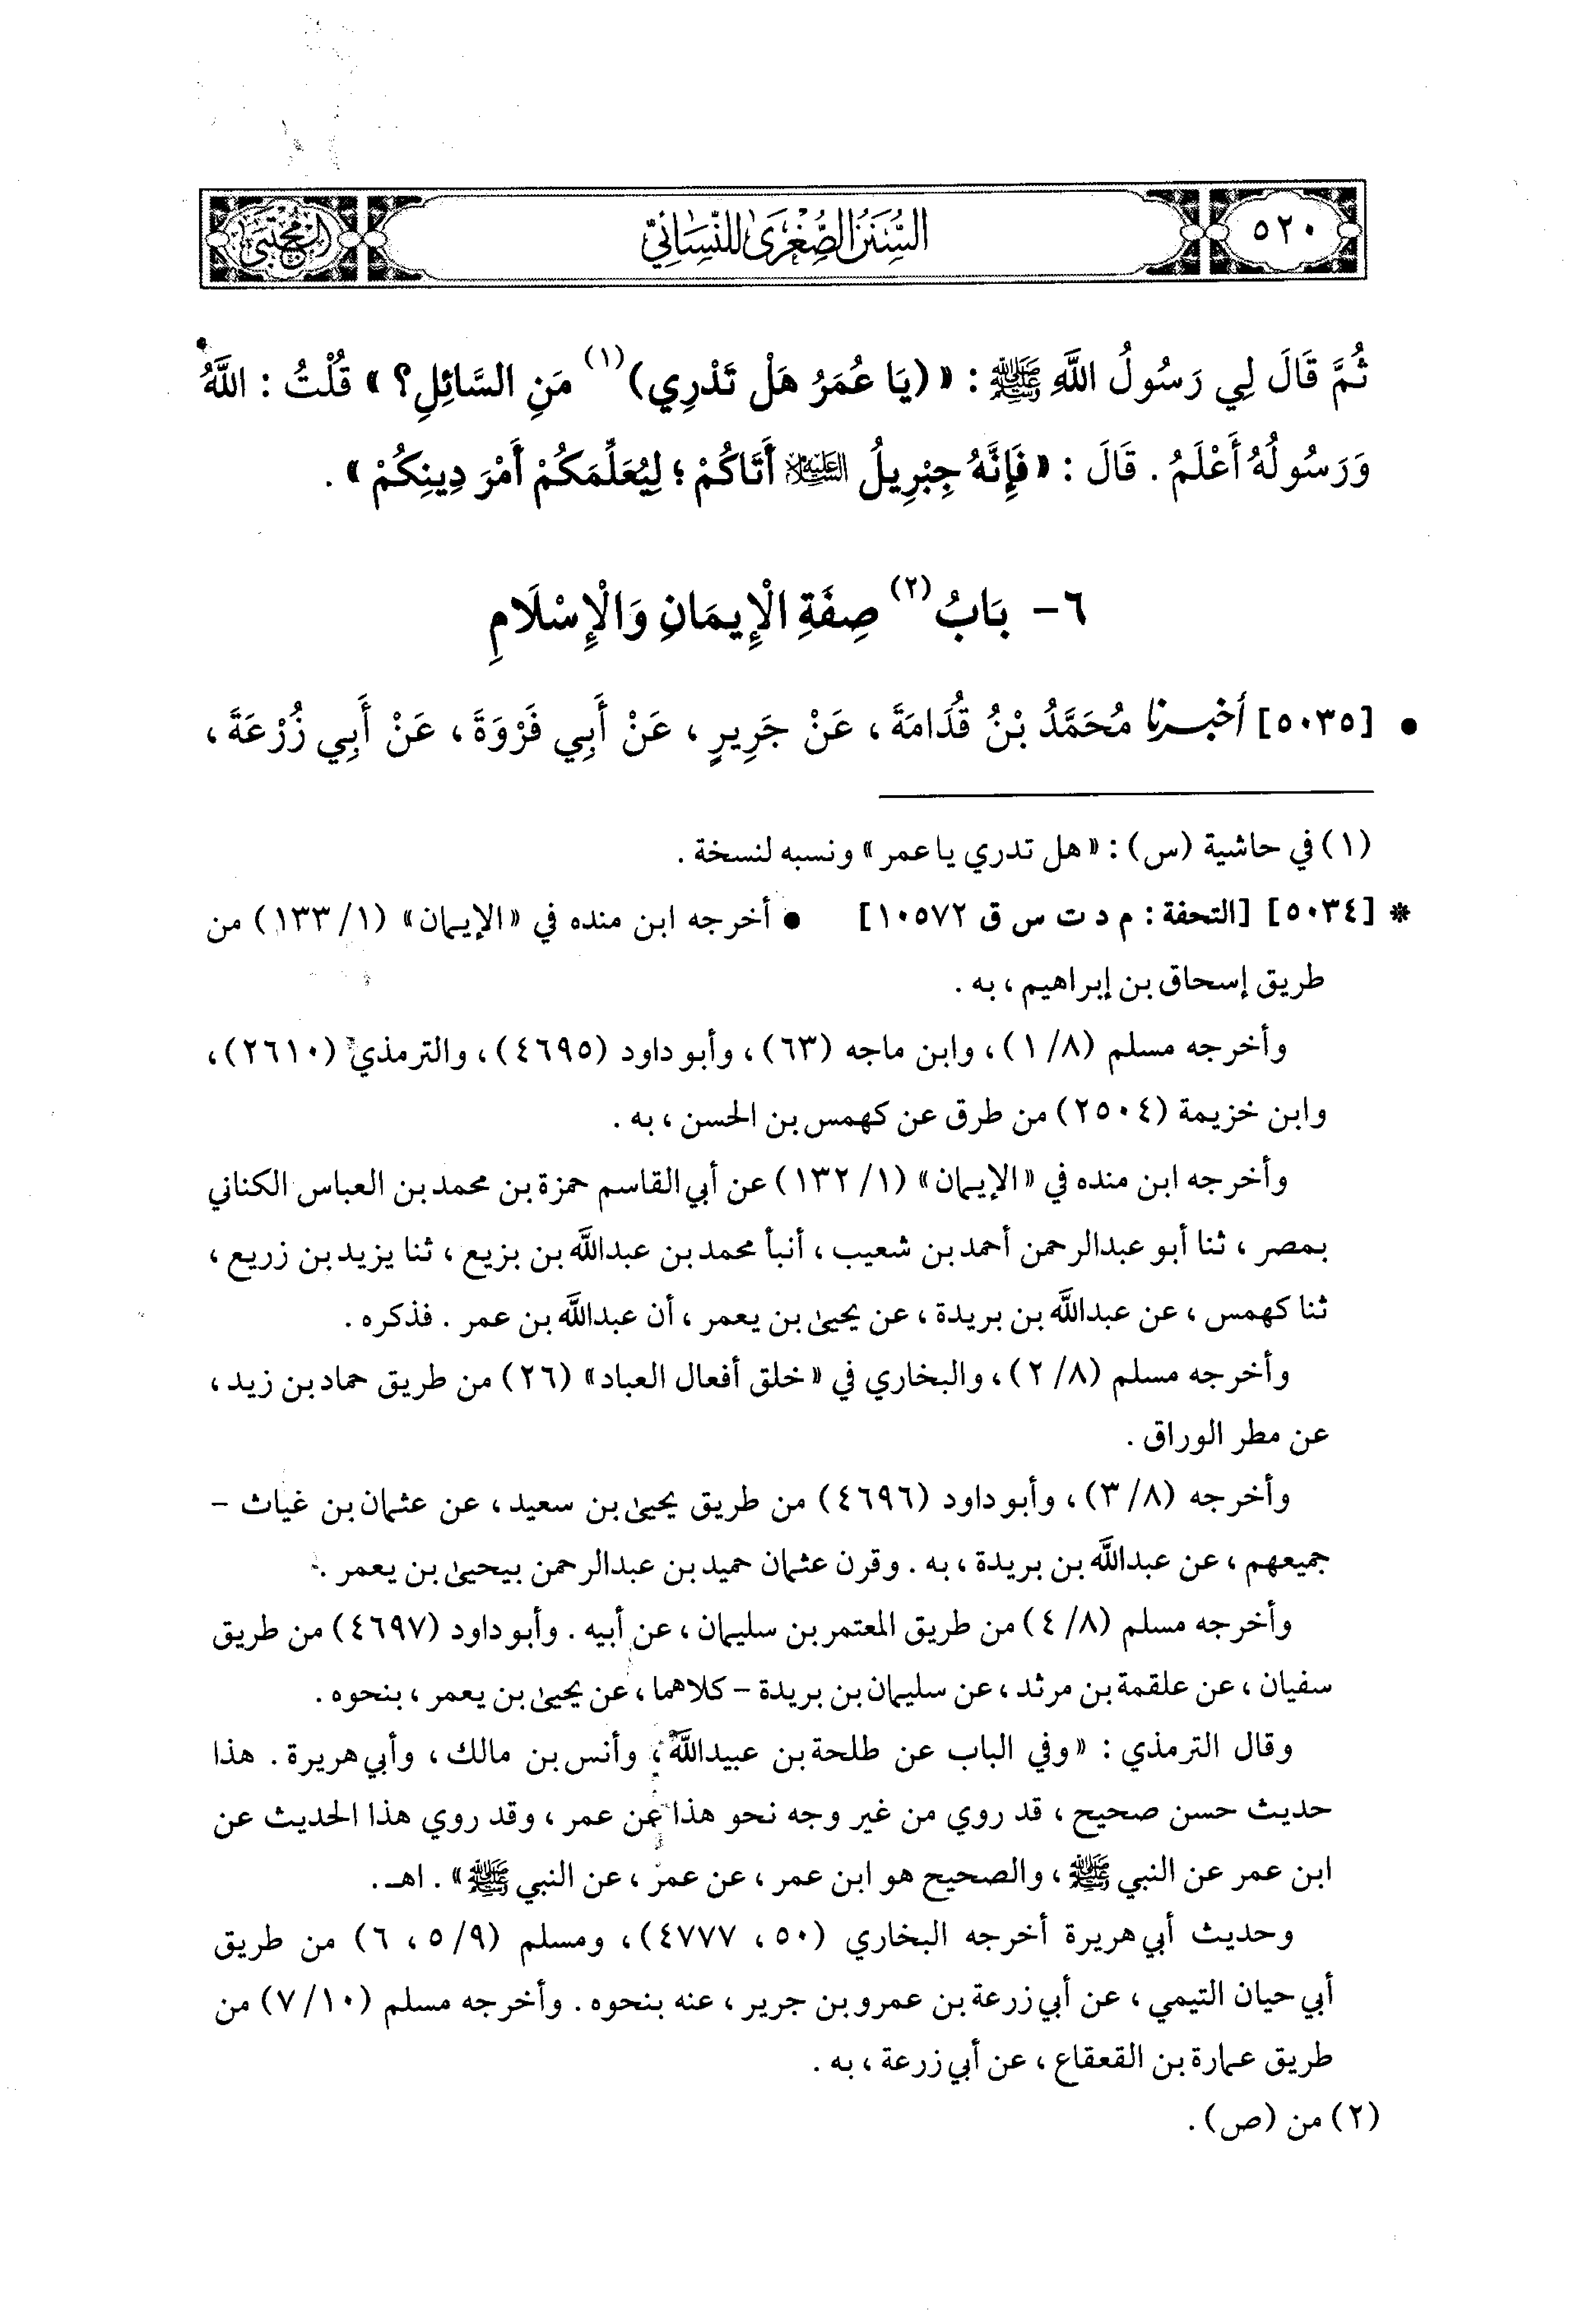 ٥٢٠
السُّنَنُ الصُّغْرَىٰ لِلنَّسَائِيِّ
المجتبى
ثُمَّ قَالَ لِي رَسُولُ اللَّهِ ﷺ : « (يَا عُمَرُ هَلْ تَدْرِي)(١) مَنِ السَّائِلِ؟ » قُلْتُ : اللَّهُ
وَرَسُولُهُ أَعْلَمُ . قَالَ : « فَإِنَّهُ جِبْرِيلُ الْعَلَيْهِ السَّلَام أَتَاكُمْ ؛ لِيُعَلِّمَكُمْ أَمْرَ دِينِكُمْ » .
٦- بَابُ(٢) صِفَةِ الْإِيمَانِ وَالْإِسْلَامِ
• [٥٠٣٥] أخبرنا مُحَمَّدُ بْنُ قُدَامَةَ ، عَنْ جَرِيرٍ ، عَنْ أَبِي فَرْوَةَ ، عَنْ أَبِي زُرْعَةَ ،
(١) في حاشية (س) : « هل تدري يا عمر » ونسبه لنسخة .
* [٥٠٣٤] [التحفة : م د ت س ق ١٠٥٧٢] • أخرجه ابن منده في «الإيمان» (١/ ١٣٣) من
طريق إسحاق بن إبراهيم ، به .
وأخرجه مسلم (٨/ ١) ، وابن ماجه (٦٣) ، وأبو داود (٤٦٩٥) ، والترمذي (٢٦١٠) ،
وابن خزيمة (٢٥٠٤) من طرق عن كهمس بن الحسن ، به .
وأخرجه ابن منده في «الإيمان» (١/ ١٣٢) عن أبي القاسم حمزة بن محمد بن العباس الكناني
بمصر ، ثنا أبو عبدالرحمن أحمد بن شعيب ، أنبأ محمد بن عبداللَّه بن بزيع ، ثنا يزيد بن زريع ،
ثنا كهمس ، عن عبداللَّه بن بريدة ، عن يحيىٰ بن يعمر ، أن عبداللَّه بن عمر . فذكره .
وأخرجه مسلم (٨/ ٢) ، والبخاري في «خلق أفعال العباد» (٢٦) من طريق حماد بن زيد ،
عن مطر الوراق .
وأخرجه (٨/ ٣) ، وأبو داود (٤٦٩٦) من طريق يحيىٰ بن سعيد ، عن عثمان بن غياث -
جميعهم ، عن عبداللَّه بن بريدة ، به . وقرن عثمان حميد بن عبدالرحمن بيحيىٰ بن يعمر .
وأخرجه مسلم (٨/ ٤) من طريق المعتمر بن سليمان ، عن أبيه . وأبو داود (٤٦٩٧) من طريق
سفيان ، عن علقمة بن مرثد ، عن سليمان بن بريدة - كلاهما ، عن يحيىٰ بن يعمر ، بنحوه .
وقال الترمذي : «وفي الباب عن طلحة بن عبيداللَّه ، وأنس بن مالك ، وأبي هريرة . هذا
حديث حسن صحيح ، قد روي من غير وجه نحو هذا عن عمر ، وقد روي هذا الحديث عن
ابن عمر عن النبي ﷺ ، والصحيح هو ابن عمر ، عن عمر ، عن النبي ﷺ» . اهـ .
وحديث أبي هريرة أخرجه البخاري (٥٠ ، ٤٧٧٧) ، ومسلم (٩/ ٥ ، ٦) من طريق
أبي حيان التيمي ، عن أبي زرعة بن عمرو بن جرير ، عنه بنحوه . وأخرجه مسلم (١٠/ ٧) من
طريق عمارة بن القعقاع ، عن أبي زرعة ، به .
(٢) من (ص) .